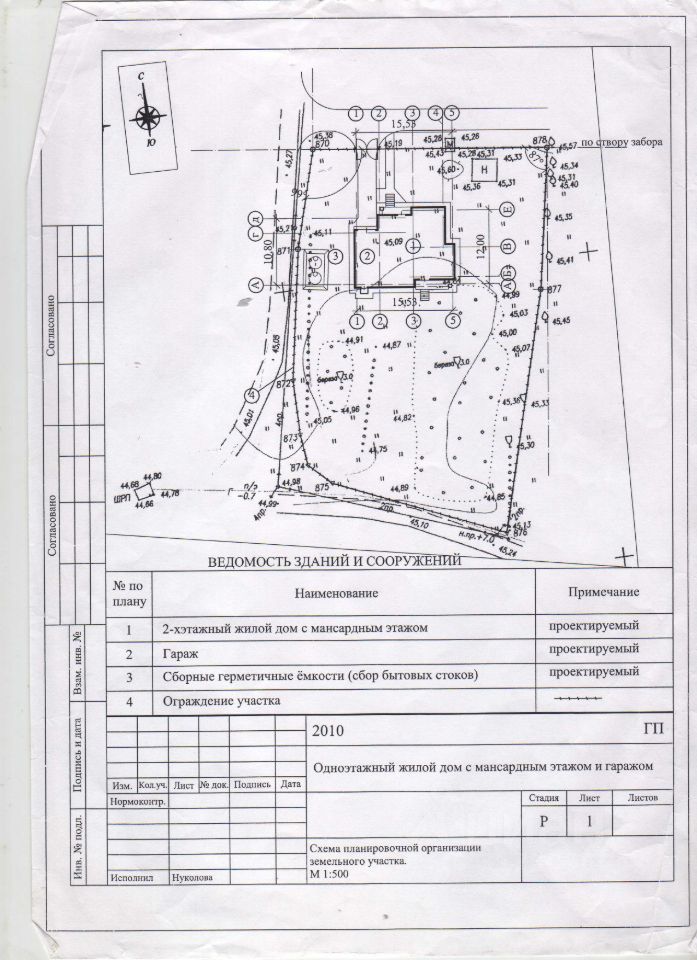 С
Ю
1 2 3 4 5
15,53
45,38
870
45,19
45,28
45,26
М
45,43
45,28
45,31
45,33
878
45,57
по створу забора
45,27
45,60
Н
45,36
45,31
45,34
45,31
45,40
45,35
Д
Г
А
10,80
45,21
45,11
871
3
2
45,09
1
Е
В
Б
А
12,00
45,41
877
44,99
45,03
45,45
15,53
1 2 3 5
45,00
45,07
45,05
44,91
44,87
872
береза
3.0
береза
3.0
4
45,01
4пр.
44,96
45,05
44,82
45,36
45,33
873
44,75
45,30
874
44,80
44,68
ШРП
44,78
44,66
Г
п/э
-0.7
44,98
875
44,89
44,85
44,99
4пр.
2пр.
45,10
н.пр.+7.0
2пр.
45,13
876
45,24
ВЕДОМОСТЬ ЗДАНИЙ И СООРУЖЕНИЙ
№ по плану Наименование Примечание
1 2-хэтажный жилой дом с мансардным этажом проектируемый
2 Гараж проектируемый
3 Сборные герметичные ёмкости (сбор бытовых стоков) проектируемый
4 Ограждение участка
2010 ГП
Одноэтажный жилой дом с мансардным этажом и гаражом
Изм. Кол.уч. Лист № док. Подпись Дата
Нормоконтр.
Стадия Лист Листов
Р 1
Схема планировочной организации
земельного участка.
М 1:500
Исполнил Нуколова
Согласовано
Согласовано
Взам. инв. №
Подпись и дата
Инв. № подл.